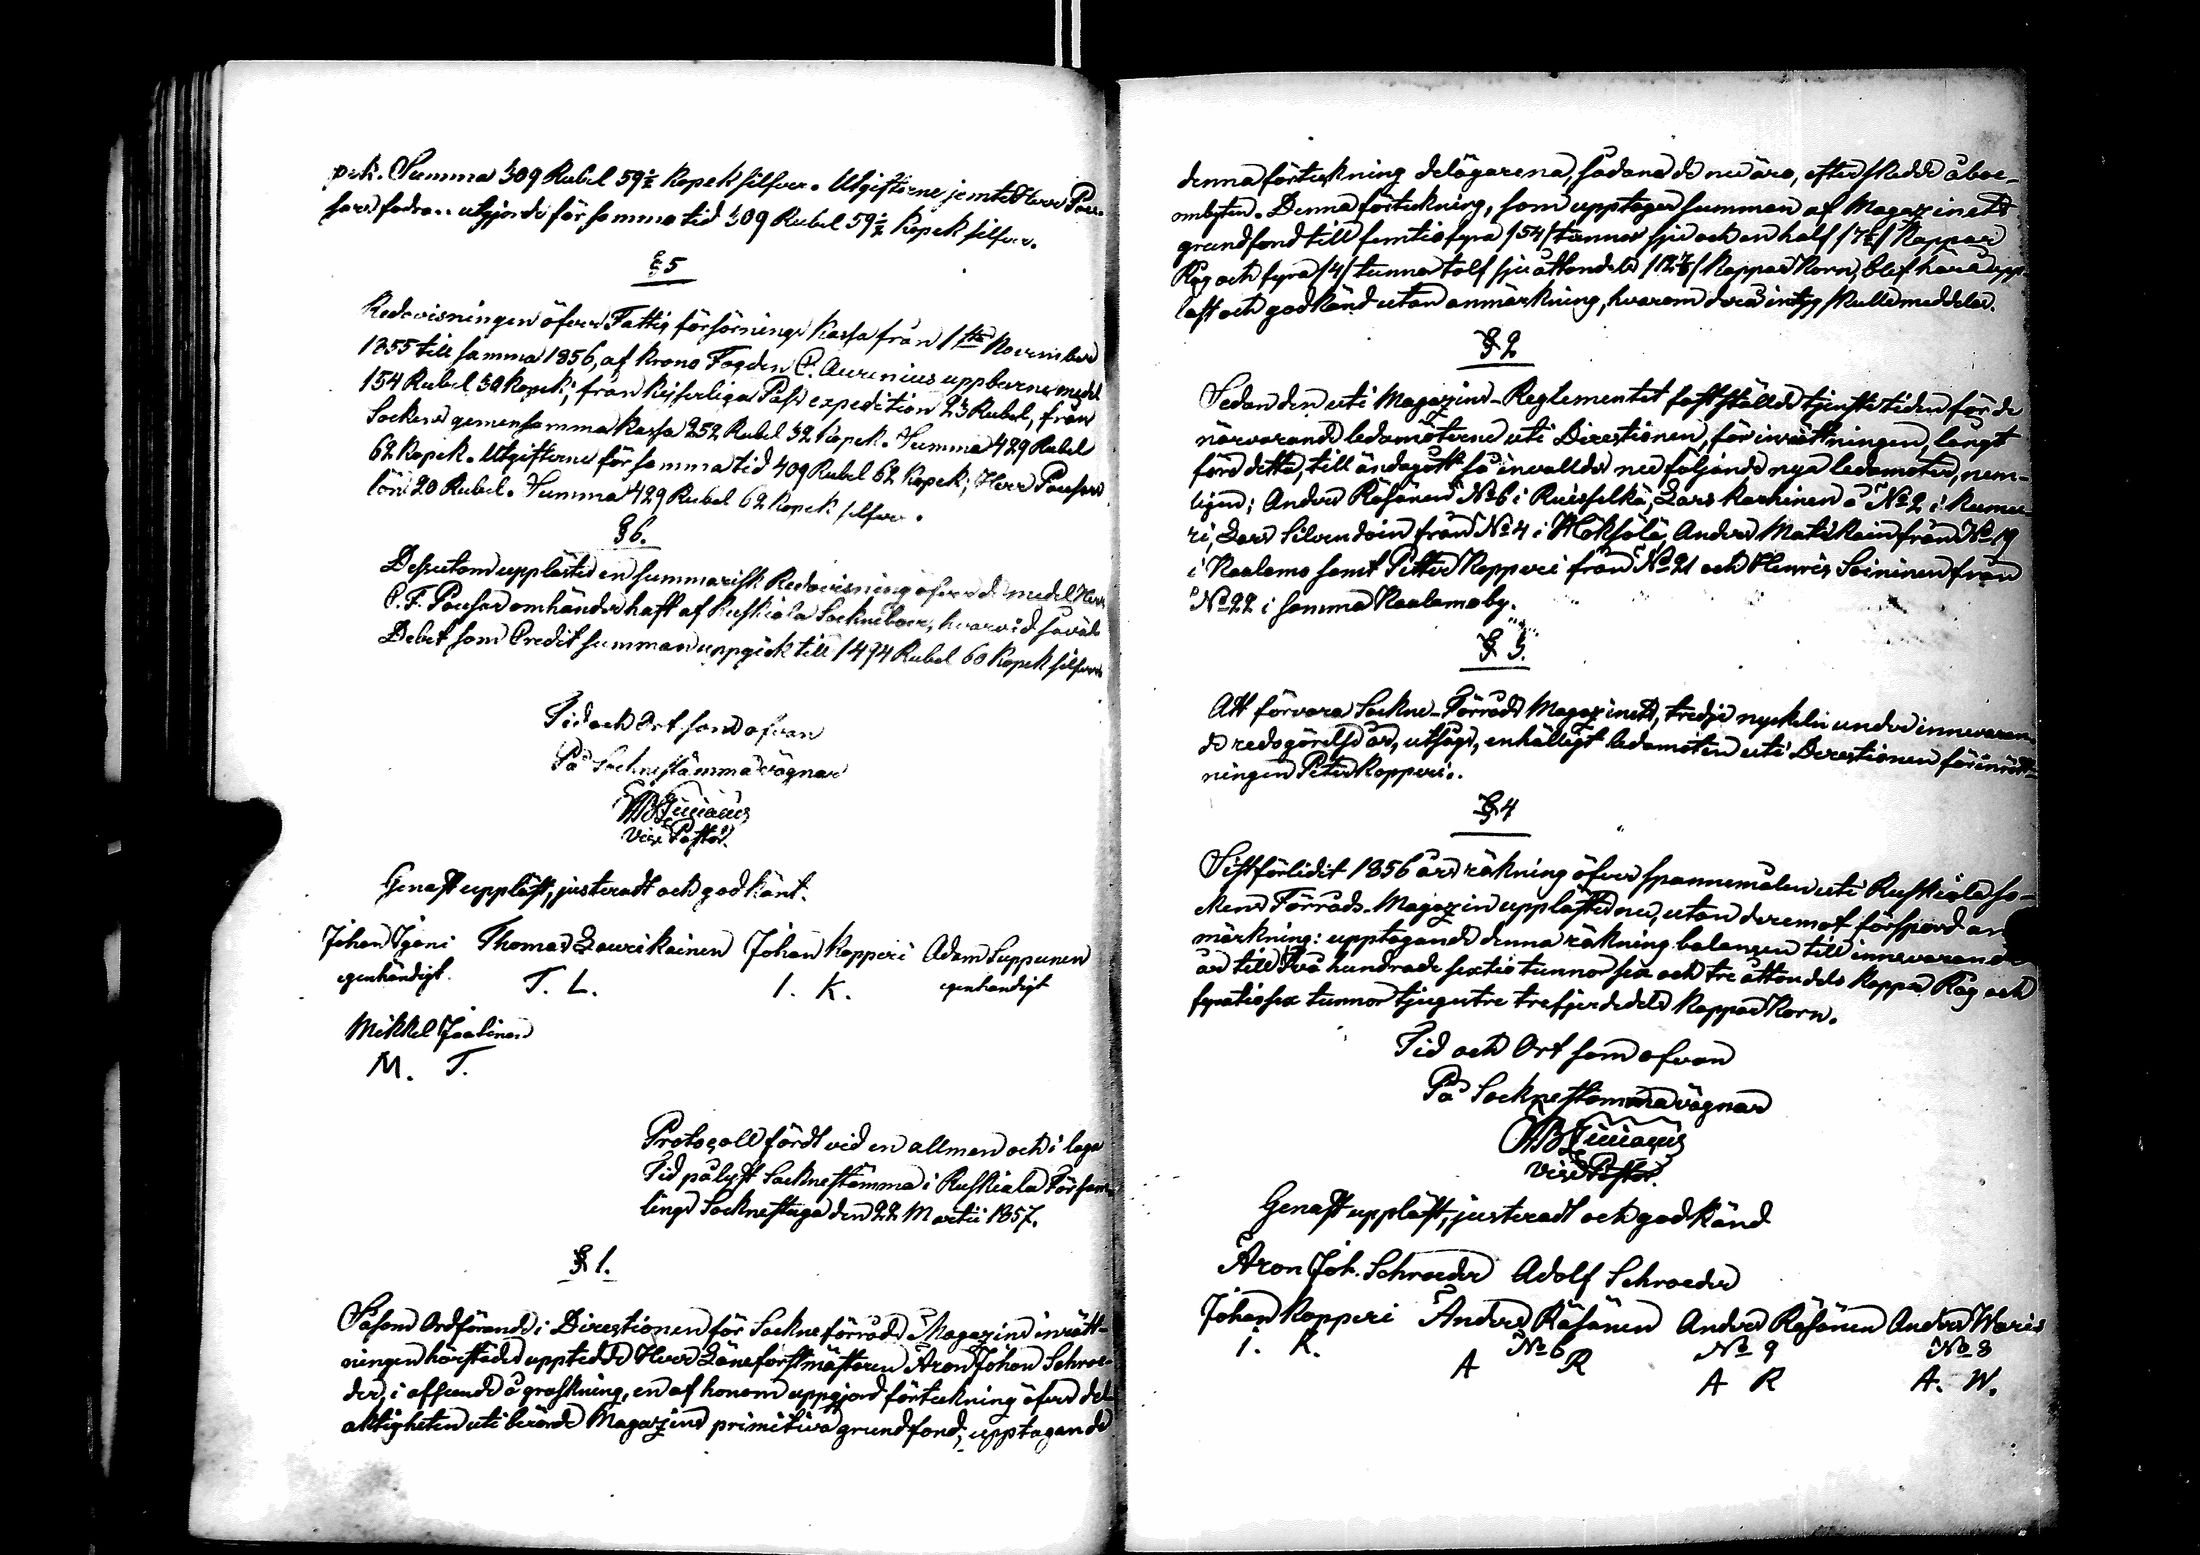 pek. Summa 309 Rubel 59½ Kopek silfver. Utgifterne jemte Herr Pou-
sars fodran utgjorde för samma tid 309 Rubel 59½ Kopek silfver.
§ 5
Redovisningen öfver Fattig försörjnings Kassa från 1sta November
1855 till samma 1856, af Krono Fogden C. Aurenius uppburne medel
154 Rubel 30 Kopek; från Kejserliga Pass expedition 23 Rubel, från
Sockens gemensamma Kassa 252 Rubel 32 Kopek. Summa 429 Rubel
62 Kopek. Utgifterne för samma tid 409 Rubel 62 Kopek; Herr Pousars
lön 20 Rubel. Summa 429 Rubel 62 Kopek silfver.
§ 6.
Dessutom upplästes en summarisk Redovisning öfver de medel Herr
C. F. Pousar omhänderhaft af Ruskiala Sockneboer, hvarvid såväl
Debet som Credit summan uppgick till 1494 Rubel 60 Kopek silfver.
Tid och Ort som ofvan
På Sockneståmma vägnar
Vice Pastor.
Genast uppläst, justeradt och godkänt.
Johan Igoni Thomas Laurikainen Johan Kopperi Adam Suppunen
egenhändigt. T. L. I. K. egenhändigt
Mikkel Taatinen
M. T.
Protocoll fördt vid en allmen och i laga
Tid pålyst Socknestämma i Ruskiala Försam-
lings Sockenstuga den 22 Martii 1857.
§ 1.
Såsom Ordförande i Directionen för Sockneförråds Magazins inrätt-
ningen härstädes uppteddes Herr Länsforstmästaren Aron Johan Schroe-
der, i afseende å graskning, en af honom uppgjord förtekning öfver del-
aktigheten uti berörde Magazins primitiva grundfond, upptagande
denna förtekning delägarena, sådane de nu äro, efter skedde åboe-
ombyten. Denna förtekning, som upptager summan af Magazinets
grundfond till femtiofyra /54/ tunnor sju och en half /7½/ Kappar
Råg och fyra /4/ tunnor tolf sju åttondels /12⅞/ Kappar Korn, blef härå upp-
läst och godkänd utan anmärkning, hvarom derå intyg skulle meddelas.
§ 2
Sedan den uti Magazins-Reglementet fastställde tjenstetiden för de
närvarande ledamöterne uti Directionen, för inrättningen, långt
före detta, till ändagått så invalldes nu följande nya ledamöter, nem-
ligen; Anders Räsänen № 6 i Ruisselkä, Lars Karhinen å № 2 i Rumu-
ri, Lars Silvendoin från № 4 i Hoksölä, Anders Matikain från № 19
i Kaalamo samt Petter Kopperi från № 21 och Henric Soininen från
№ 22 i samma Kaalamo by.
§ 3.
Att förvara Sockne-Förråds Magazinets, tredje nyckeln under innevaran-
de redogörelse år, utsågs, enhälligt ledamoten uti Directionen för inrätt-
ningen Peter Kopperi.
§ 4
Sistförlidit 1856 års räkning öfver spannemålen uti Ruskiala so-
ckens Förråds-Magazin upplästes nu, utan deremot försport an-
märkning: upptagande denna räkning balancen till innevarande
år till Två hundrade sextio tunnor sex och tre åttondels Kappar Råg och
fyratiosex tunnor tjugutre trefjerdedels Kappar Korn.
Tid och Ort som ofvan
På Socknestämma vägnar
Vice Pastor.
Genast uppläst, justeradt och godkänd
Aron Joh. Schroeder Adolf Schroeder
Johan Kopperi Anders Räsänen Anders Räsänen Anders Waris
I. K. № 6 № 9 № 8
A R A R A. W.